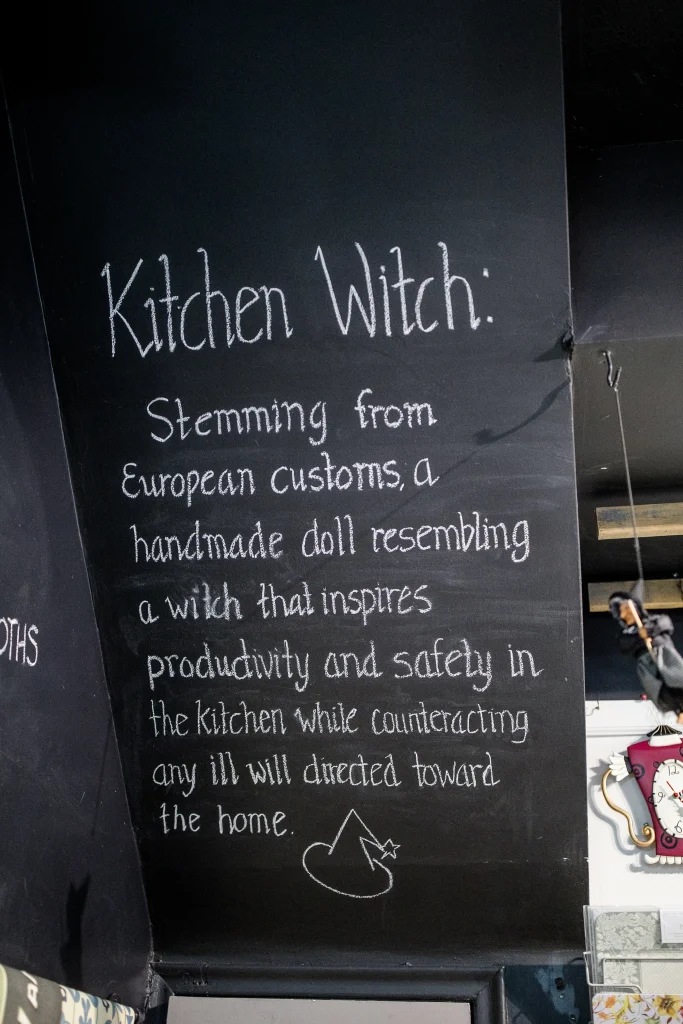 Kitchen Witch:
Stemming from
European customs, a
handmade doll resembling
a witch that inspires
productivity and safety in
the kitchen while counteracting
any ill will directed toward
the home.
OTHS
12